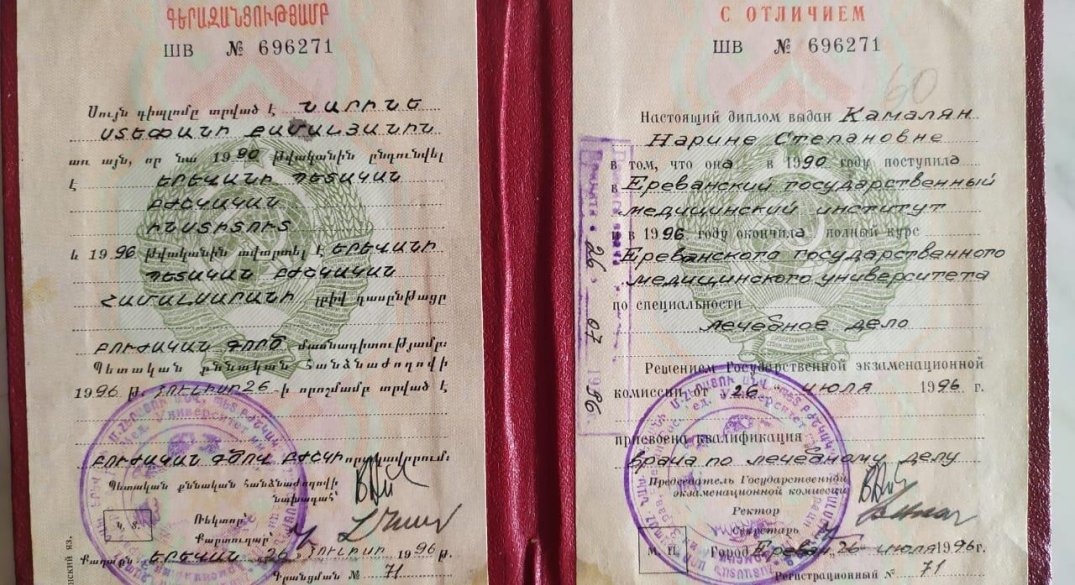 ԳԵՐԱԶԱՆՑՈՒԹՅԱՄԲ
ШВ № 696271
Սույն դիպլոմը տրված է ՆԱՐԻՆԵ
ՍՏԵՓԱՆԻ ՔԱՄԱԼՅԱՆԻՆ
առ այն, որ նա 1990 թվականին ընդունվել
է ԵՐԵՎԱՆԻ ՊԵՏԱԿԱՆ
ԲԺՇԿԱԿԱՆ
ԻՆՍՏԻՏՈՒՏ
և 1996 թվականին ավարտել է ԵՐԵՎԱՆԻ
ՊԵՏԱԿԱՆ ԲԺՇԿԱԿԱՆ
ՀԱՄԱԼՍԱՐԱՆԻ լրիվ դասընթացը
ԲՈՒԺԱԿԱՆ ԳՈՐԾ մասնագիտությամբ։
Պետական քննական հանձնաժողովի
1996 թ. ՀՈՒԼԻՍԻ 26-ի որոշմամբ տրված է
ԲՈՒԺԱԿԱՆ ԳԾՈՎ ԲԺՇԿԻ որակավորում։
Պետական քննական հանձնաժողովի
նախագահ՝
Կ. Տ.
Ռեկտոր՝
Քարտուղար՝
Քաղաքը ԵՐԵՎԱՆ 26 ՀՈՒԼԻՍԻ 1996 թ.
Գրանցման № 71
С ОТЛИЧИЕМ
ШВ № 696271
60
Настоящий диплом выдан Камалян
Нарине Степановне
в том, что она в 1990 году поступила
в Ереванский государственный
медицинский институт
и в 1996 году окончила полный курс
Ереванского государственного
медицинского университета
по специальности
лечебное дело
Решением Государственной экзаменационной
комиссии от "26" июля 1996 г.
присвоена квалификация
врача по лечебному делу
Председатель Государственной
экзаменационной комиссии
Ректор
Секретарь
М. П. Город Ереван, 26 июля 1996 г.
Регистрационный № 71
26 07 1996